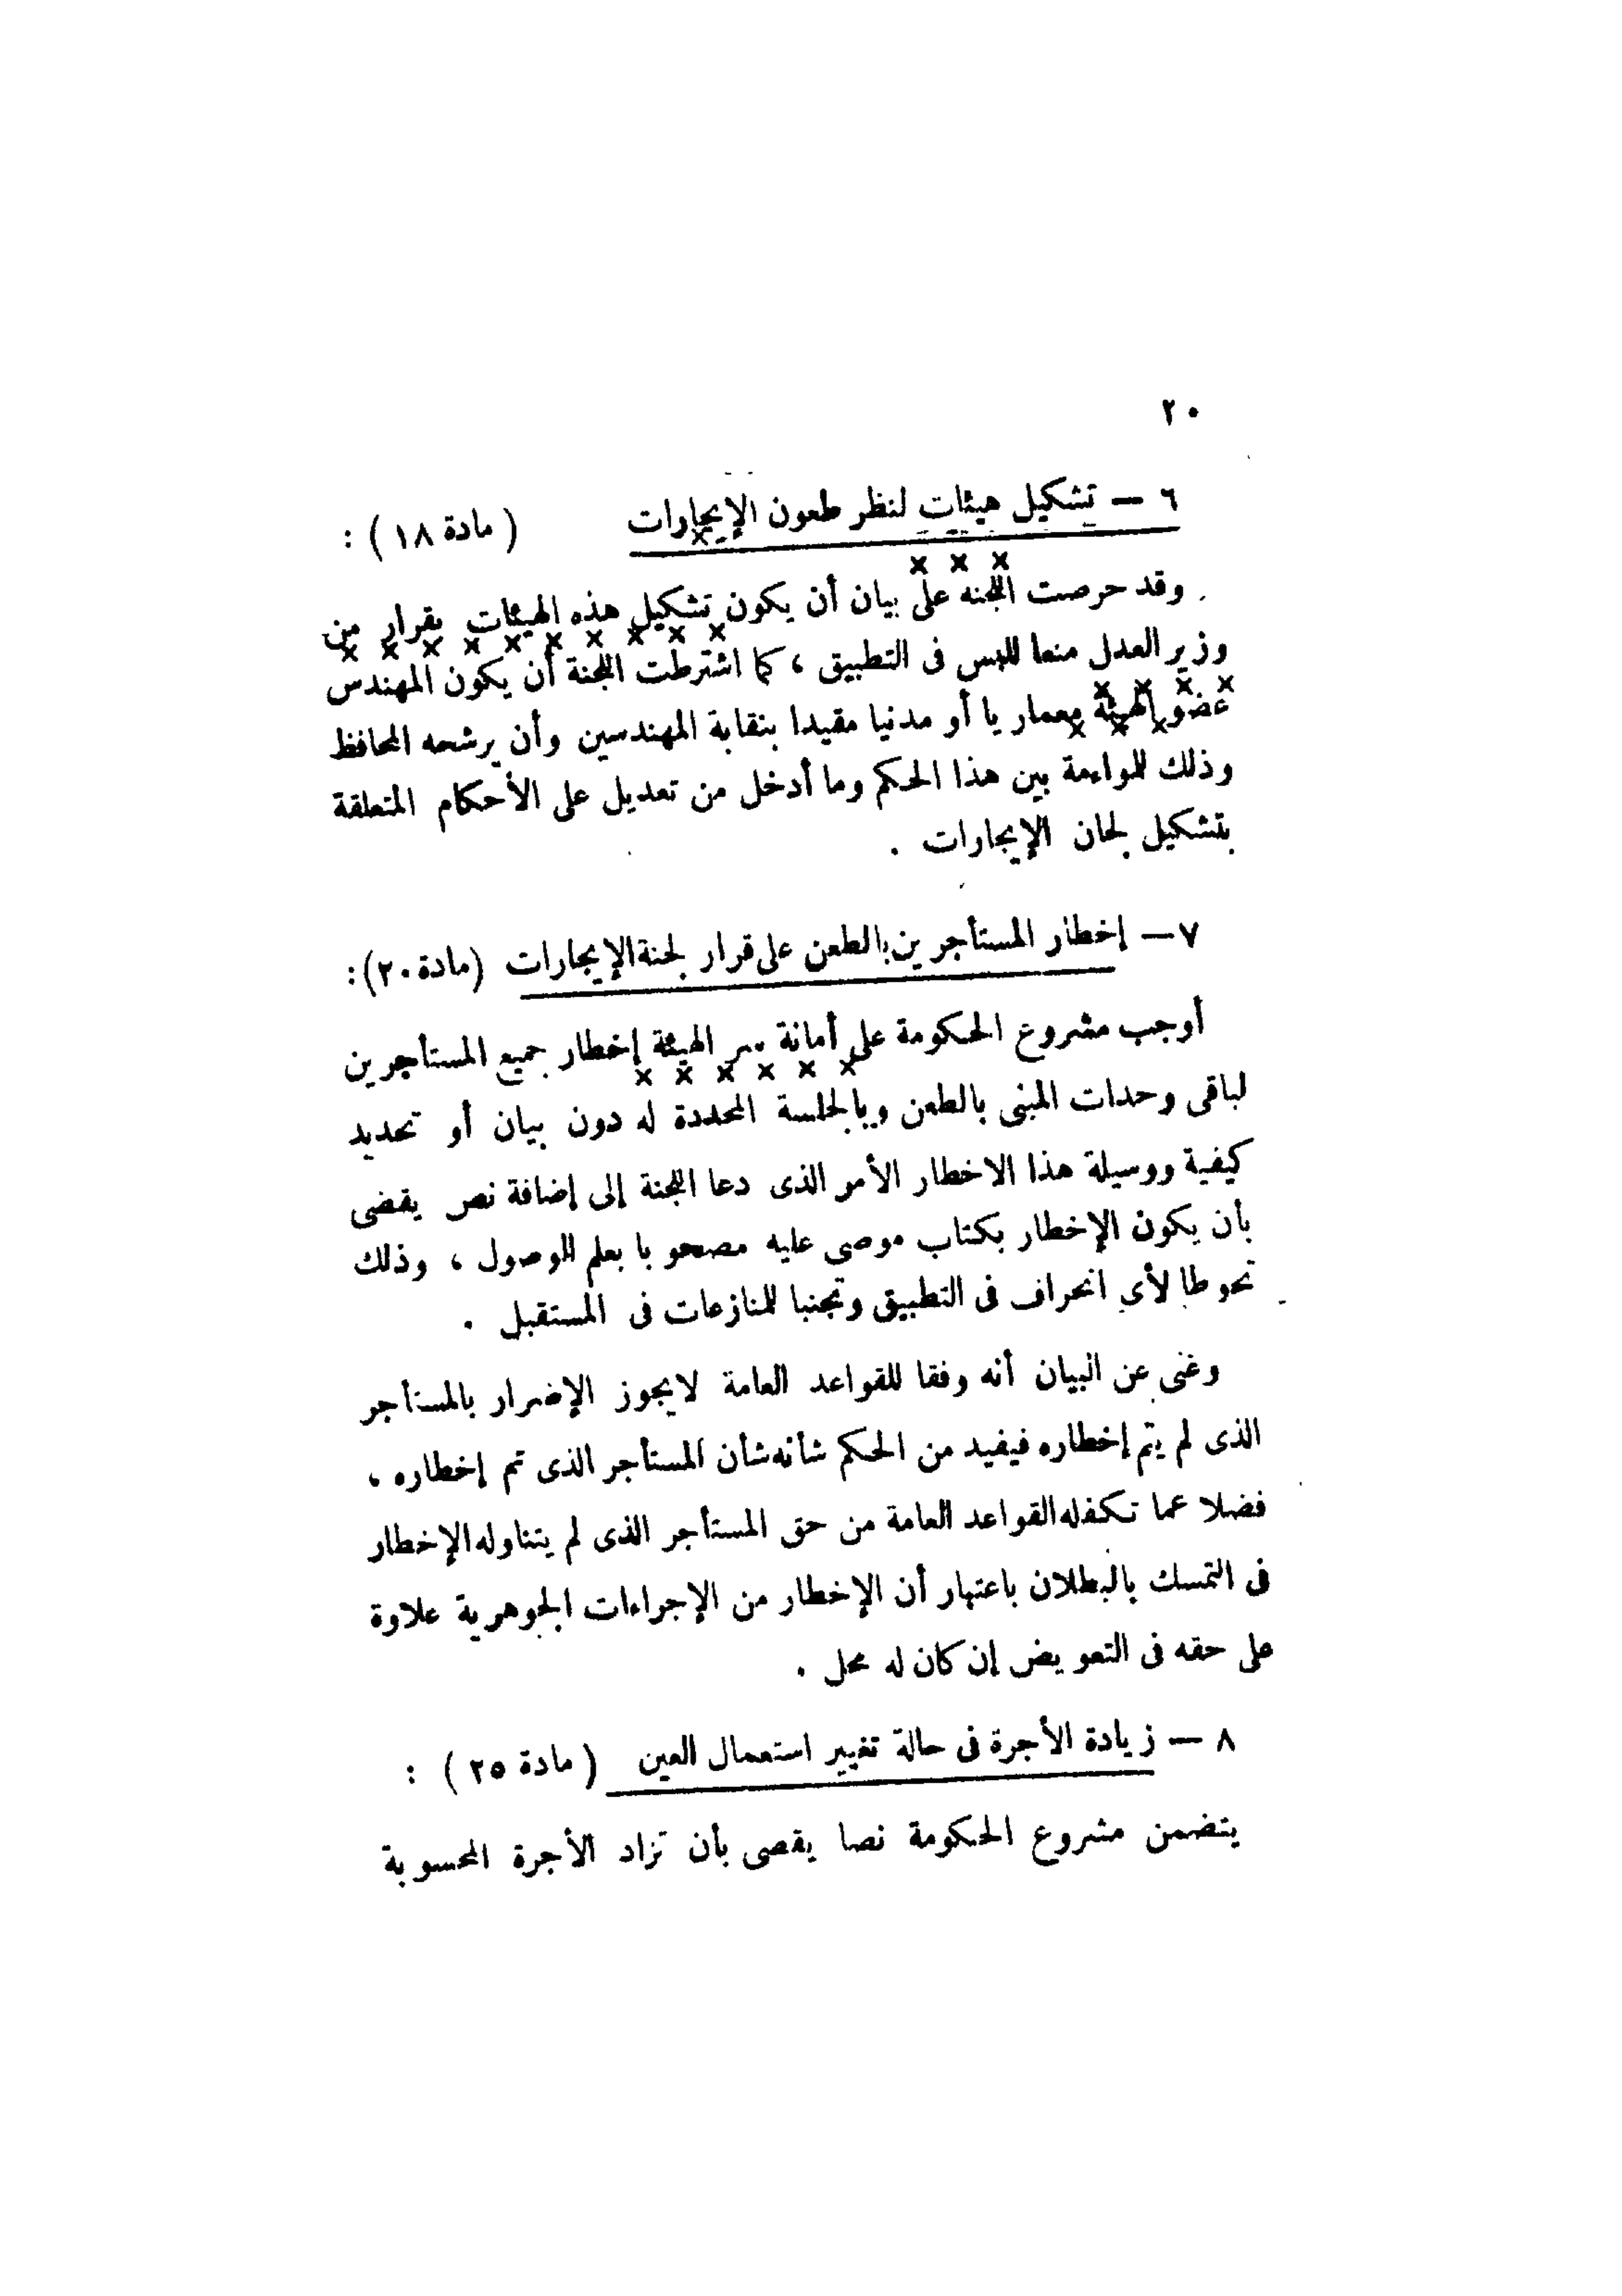 ٢٠
٦ — تشكيل هيئات لنظر طعون الإيجارات ( مادة ١٨ ) :
وقد حرصت اللجنه على بيان أن يكون تشكيل هذه الهيئات بقرار من
وزير العدل منعا للبس فى التطبيق ، كما اشترطت اللجنة أن يكون المهندس
عضو الهيئة معماريا أو مدنيا مقيدا بنقابة المهندسين وأن يرشحه المحافظ
وذلك للمواءمة بين هذا الحكم وما أدخل من تعديل على الأحكام المتعلقة
بتشكيل لجان الإيجارات .
٧ — إخطار المستأجرين بالطعن على قرار لجنة الإيجارات (مادة ٢٠) :
أوجب مشروع الحكومة على أمانة سر الهيئة إخطار جميع المستأجرين
لباقى وحدات المبنى بالطعن وبالجلسة المحددة له دون بيان أو تحديد
كيفية ووسيلة هذا الاخطار الأمر الذى دعا اللجنة إلى إضافة نص يقضى
بأن يكون الإخطار بكتاب موصى عليه مصحوبا بعلم الوصول ، وذلك
تحوطا لأى انحراف فى التطبيق وتجنبا للمنازعات فى المستقبل .
وغنى عن البيان أنه وفقا للقواعد العامة لايجوز الإضرار بالمستأجر
الذى لم يتم إخطاره فيفيد من الحكم شأنه شأن المستأجر الذى تم إخطاره ،
فضلا عما تكفله القواعد العامة من حق المستأجر الذى لم يتناوله الإخطار
فى التمسك بالبطلان باعتبار أن الإخطار من الإجراءات الجوهرية علاوة
على حقه فى التعويض إن كان له محل .
٨ — زيادة الأجرة فى حالة تغيير استعمال العين ( مادة ٢٥ ) :
يتضمن مشروع الحكومة نصا يقصى بأن تزاد الأجرة المحسوبة